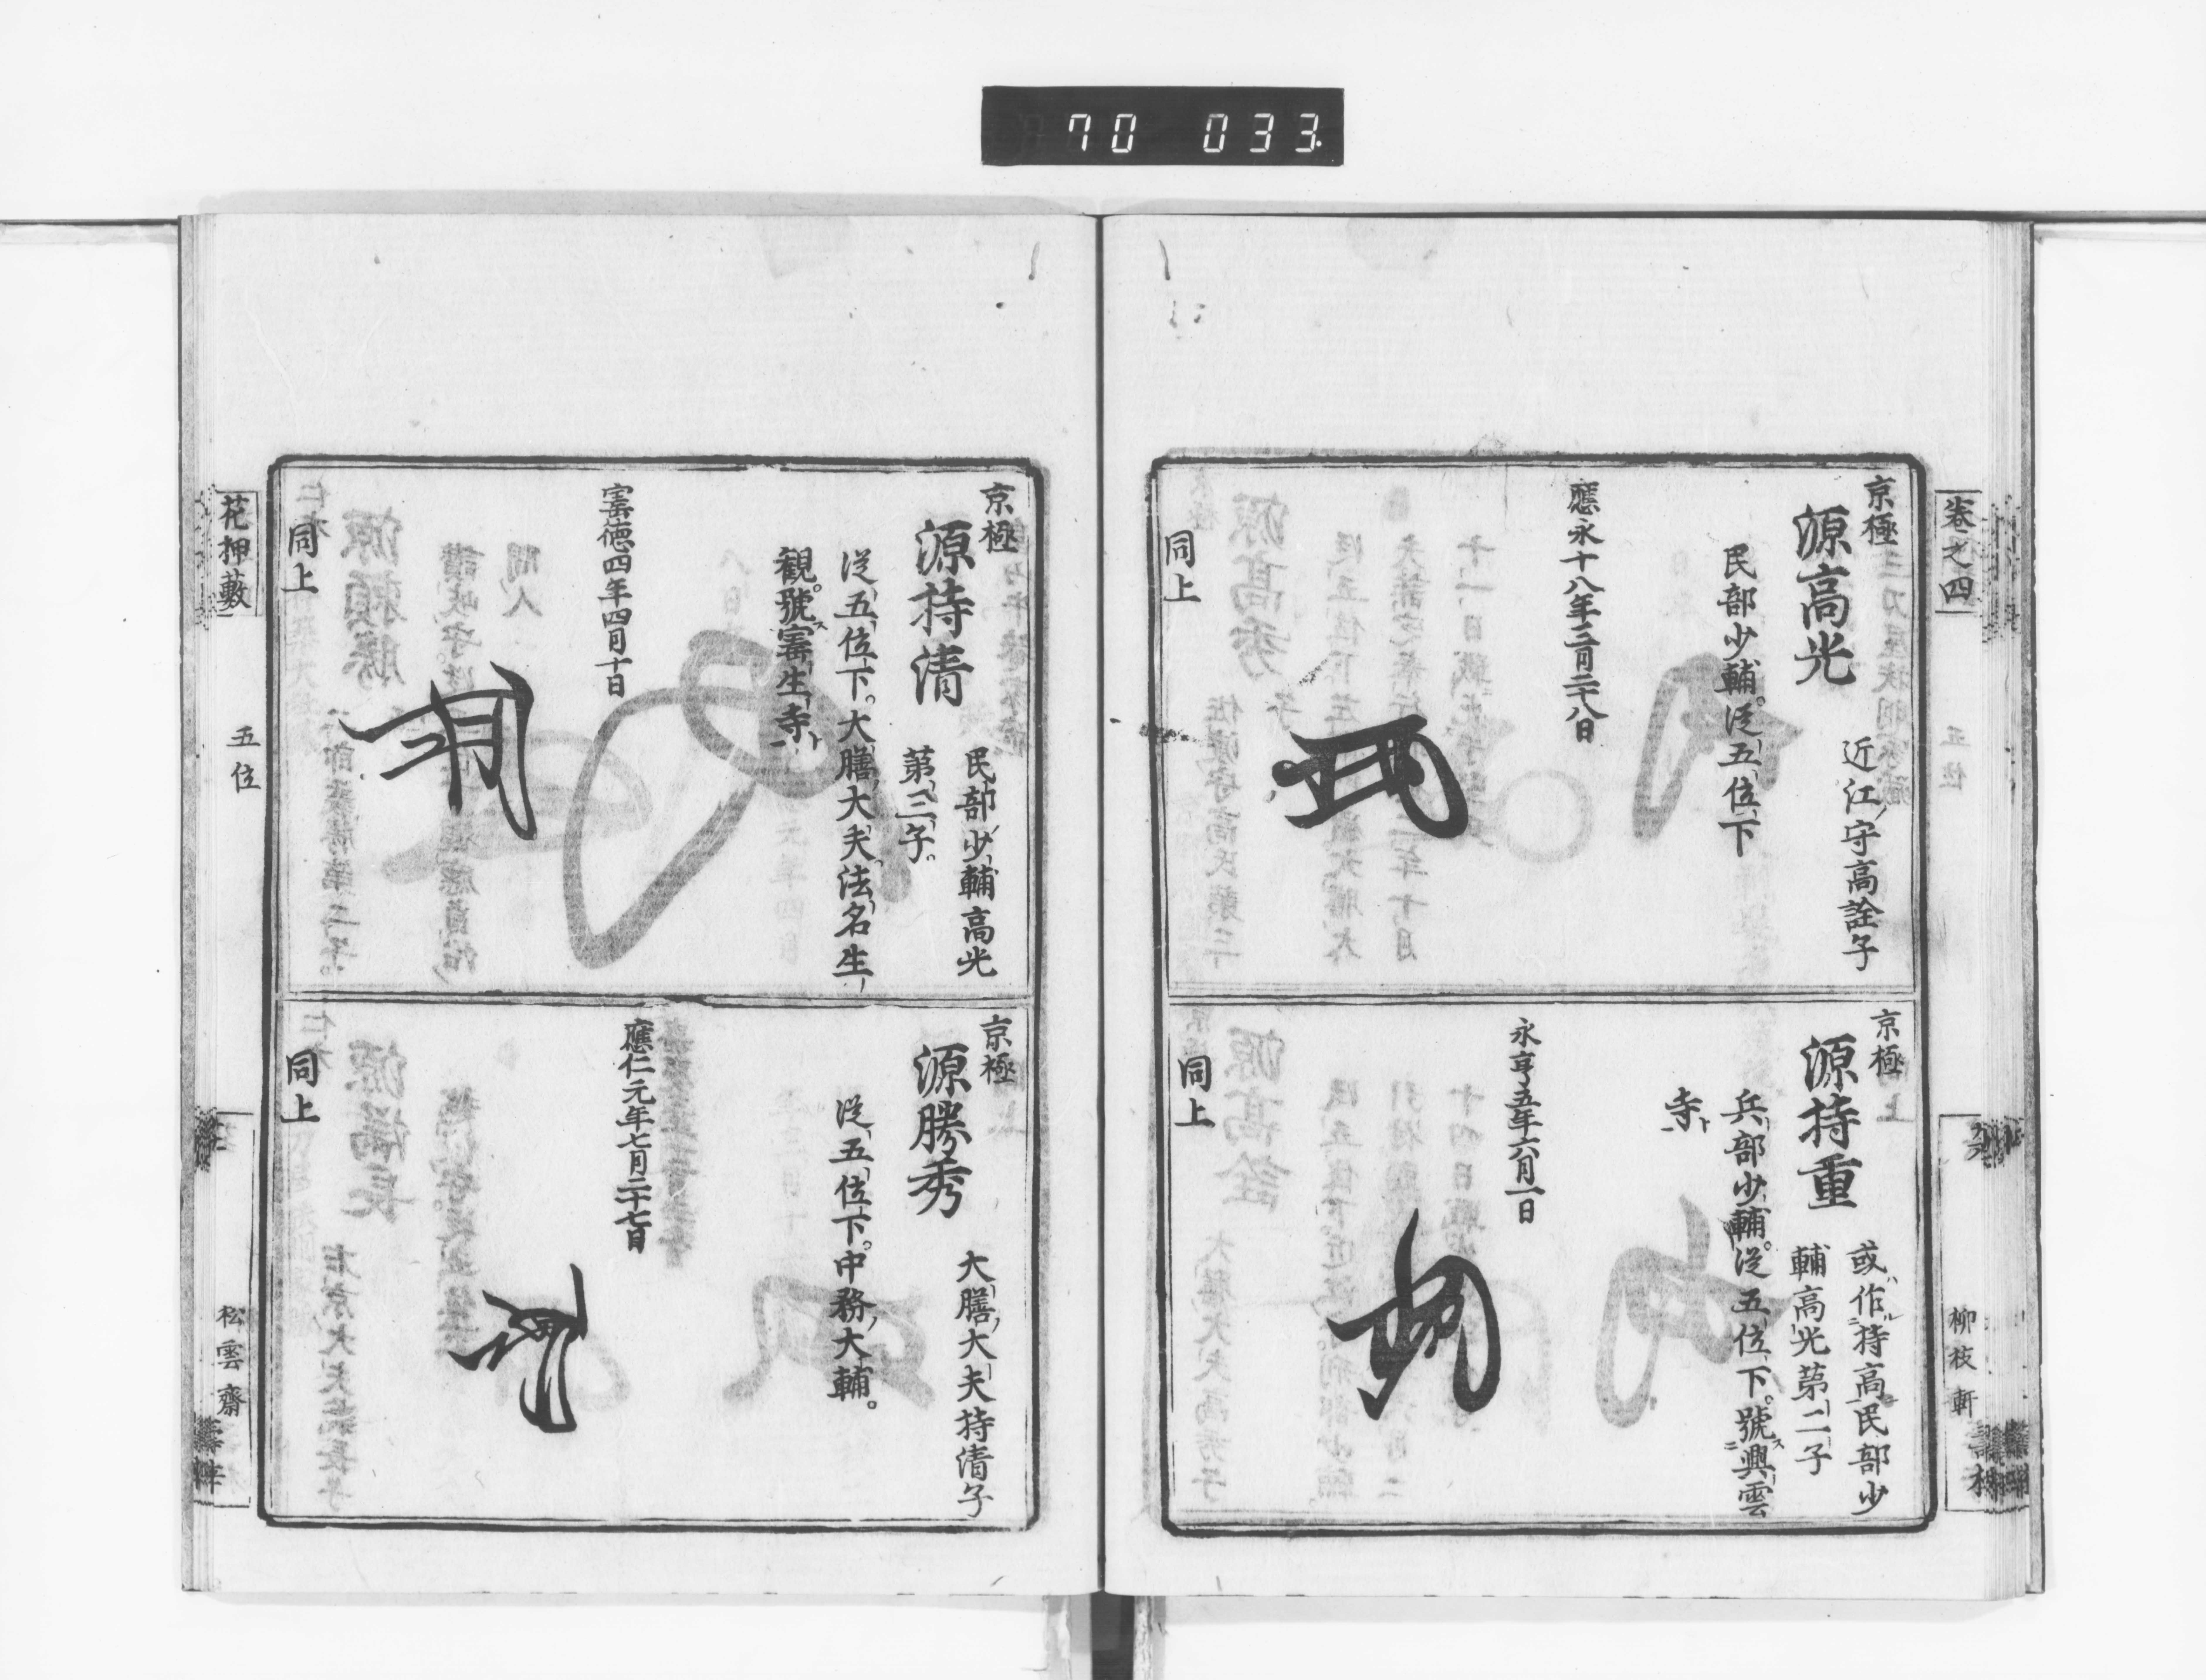 70 033
卷之四
五位
柳枝軒
京極
源高光
近江守高詮子
民部少輔。從五位下
應永十八年三月二十八日
同上
京極
源持重
或作持高民部少
輔高光第二子
兵部少輔。從五位下。號興雲
寺
永享五年六月一日
同上
京極
源持清
民部少輔高光
第三子。
從五位下。大膳大夫法名生
観。號寳生寺
寳徳四年四月十日
同上
京極
源勝秀
大膳大夫持清子
從五位下。中務大輔。
應仁元年七月二十七日
同上
花押藪
五位
松雲齋